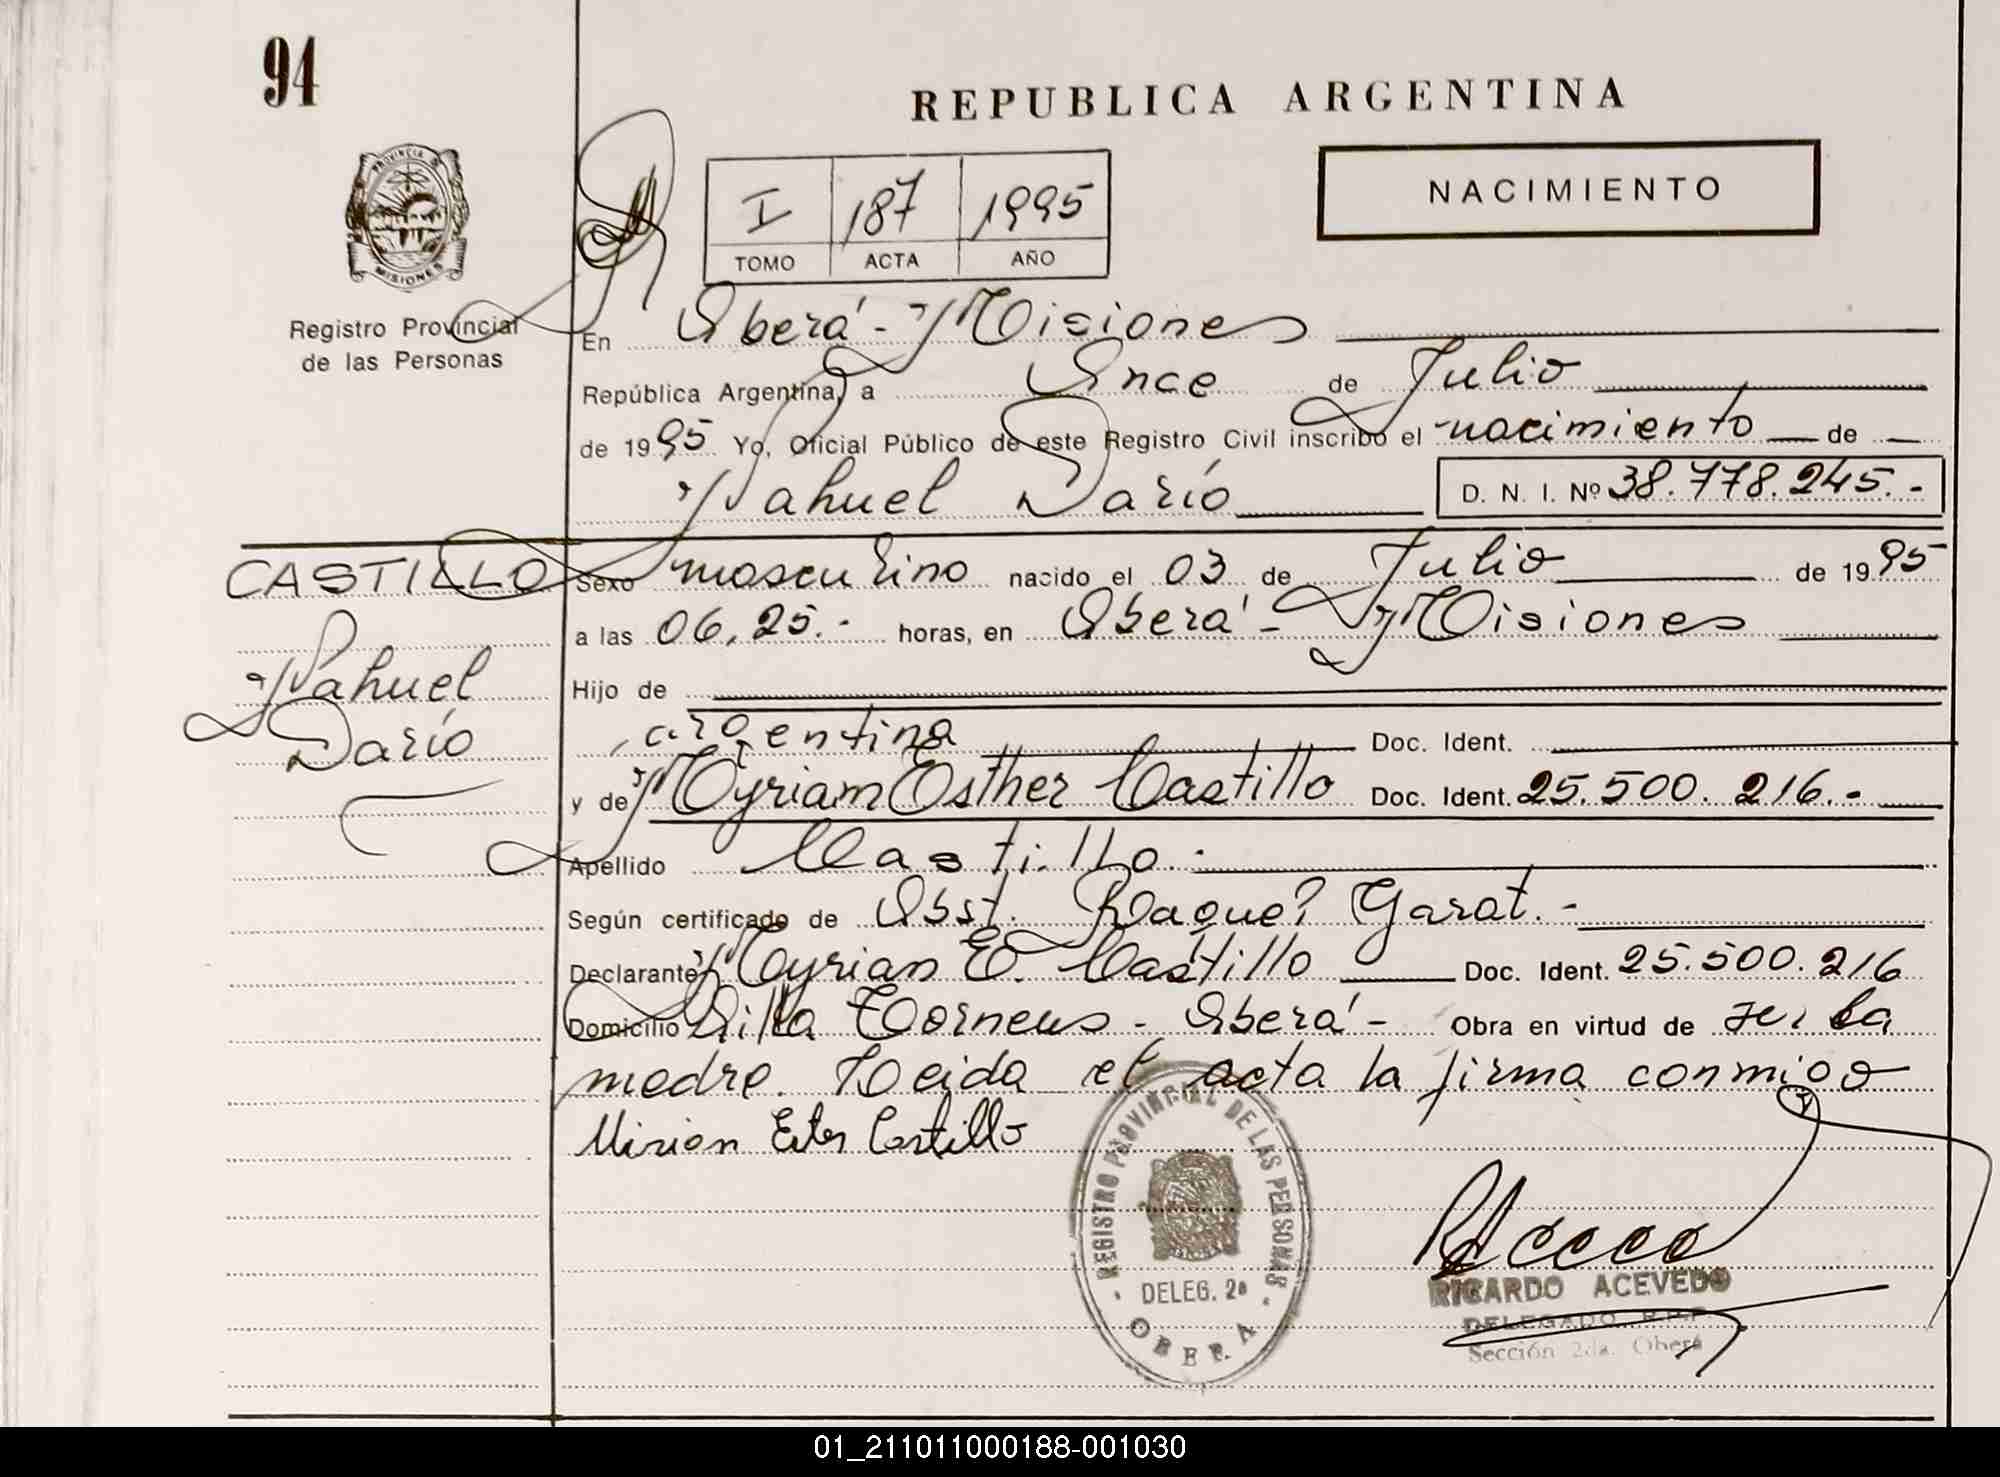 94
REPUBLICA ARGENTINA
NACIMIENTO
PROVINCIA DE
MISIONES
Registro Provincial
de las Personas
I 187 1995
TOMO ACTA AÑO
En Oberá - Misiones
República Argentina, a Once de Julio
de 1995 Yo, Oficial Público de este Registro Civil inscribo el nacimiento de
Nahuel Darío D. N. I. Nº 38.778.245.-
CASTILLO
Nahuel
Darío
Sexo masculino nacido el 03 de Julio de 1995
a las 06,25.- horas, en Oberá - Misiones
Hijo de
argentina Doc. Ident.
y de Myriam Esther Castillo Doc. Ident. 25.500.216.-
Apellido Castillo.-
Según certificado de Obst. Raquel Garat.-
Declarante Myrian E. Castillo Doc. Ident. 25.500.216
Domicilio Villa Torneus - Oberá - Obra en virtud de ser la
madre. Leida el acta la firma conmigo
Mirian Ester Castillo
REGISTRO PROVINCIAL DE LAS PERSONAS
DELEG. 2ª
OBERA
RICARDO ACEVEDO
DELEGADO R.P.P.
Sección 2da. Oberá
01_211011000188-001030